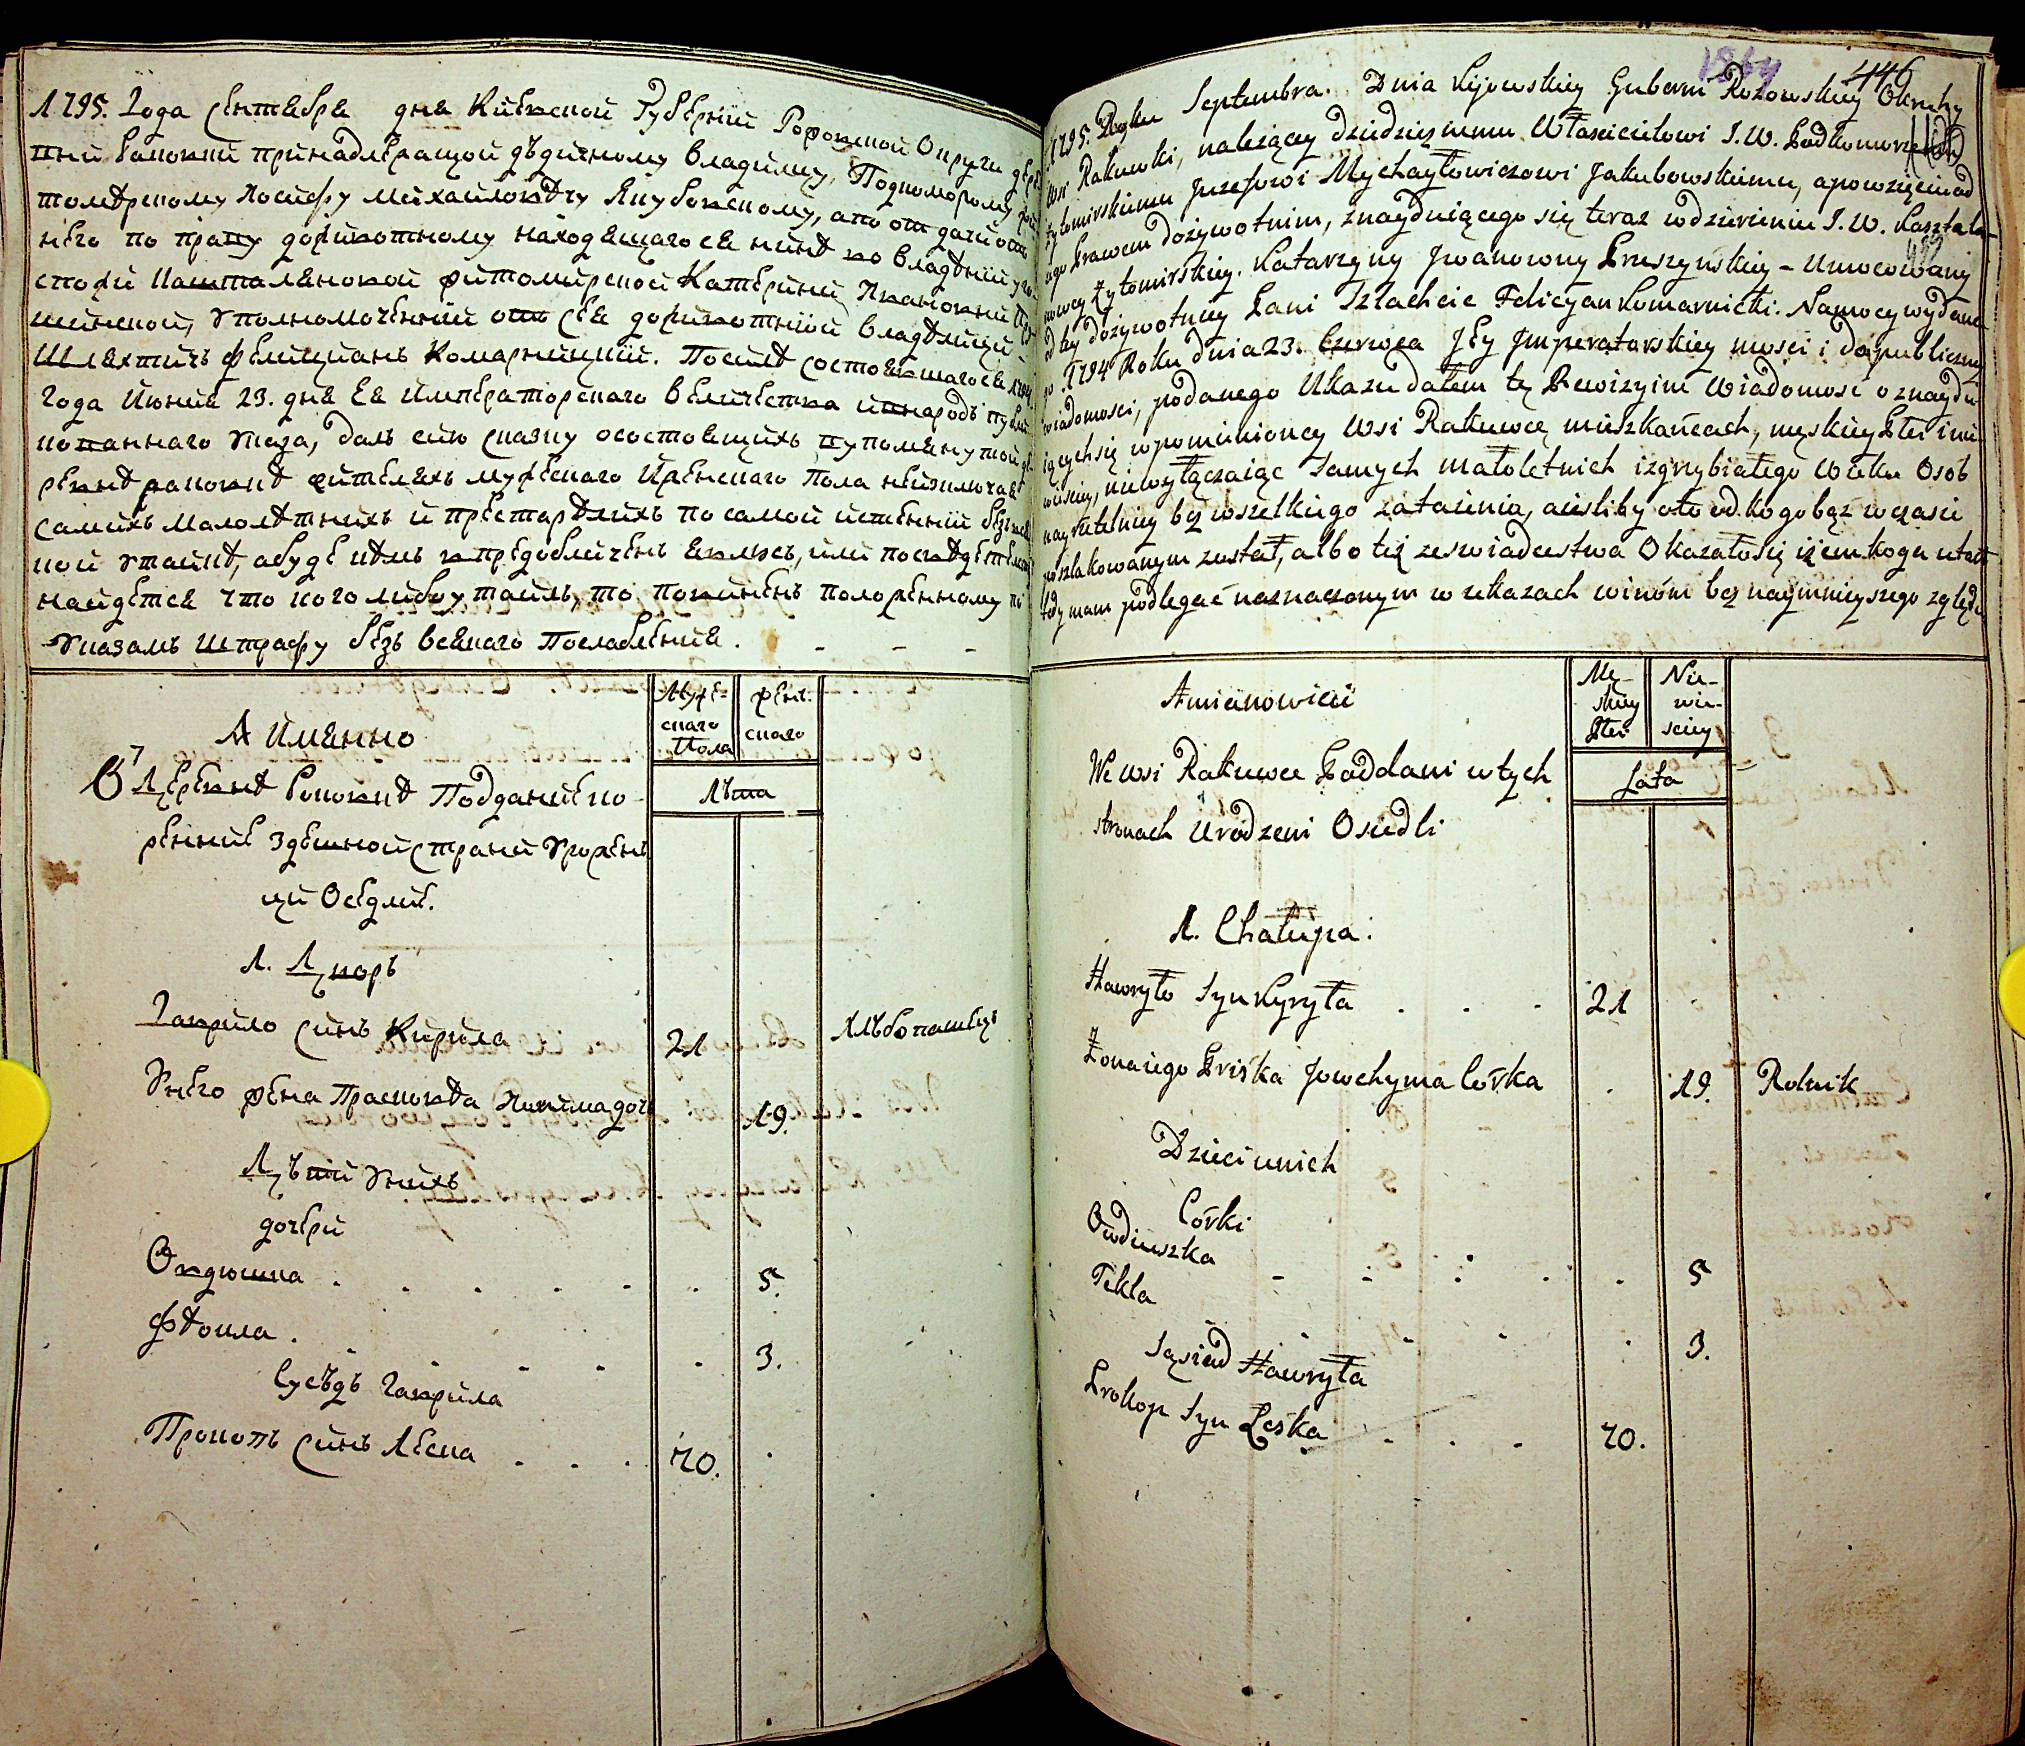 1795. Года Сентября дня Киевской Губернии Рожовской Округи
принадлежащой дѣдичному владѣлцу, Подкоморому
Иосифу Михайловичу Якубовскому, а по от дачи от
него по праву доживотному находящагося нинѣ во владѣнии
Каштеляновой житомирской Катерини Ивановни
уполномоченний от сея доживотний владѣлици
Шляхтичъ Фелициянъ Комарницкий. Послѣ состоявшагося 1794
Года Июния 23. дня Ея Императорскаго величества и в народъ
указа, далъ сию сказку о состоящихъ в упомянутой
жителяхъ мужескаго и женскаго пола не изключая
самихъ малолѣтнихъ и престарѣлихъ по самой истеннии безъ
кой утайки, а буде кемъ в предъ обличенъ явлюсь, или по свѣдетелст
найдется что кого либо утаилъ, то повиненъ положенному по
указамъ штрафу безъ всякаго Послабления.
А Имянно
Муже-
скаго
Пола
женс.
скаго
Лѣта
7
В Деревнѣ Раковкѣ Поддание ко-
ренние здешной страни урожен
ци Оседлие.
1. Дворъ
Гаврило синъ Кирила
21
Хлѣбопашецъ
У него жена Прасковѣа Якима дочь
19.
Дѣти у нихъ
дочери
Овдюшка . . . . . . 5.
Фѣокла . . . . . 3.
Сусѣдъ Гаврила
Прокопъ синъ Леска . . . 70. .
1864
446
1795. Roku Septembra. Dnia Kijowskiey Gubernii Rozowskiey Okruhy
Wsi Rakuwki, należący dziedzicznemu Włascicielowi J. W. Podkomorzemu
żytomirskiemu Juzefowi Mychayłowiczowi Jakubowskiemu, a powzięciu od
iego Prawem dożywotnim, znayduiącego się teraz w dzierżeniu J. W. Kasztela-
nowey Żytomirskiey. Katarzyny Jwanowny Pruszynskiey – Umocowany
od tey dożywotniey Pani Szlachcic Felicyan Komarnicki. Na mocy wydane
go 1794 Roku dnia 23. Czerwca Jey Jmperatorskiey mosci i do publiczney
wiadomosci, podanego Ukazu dałem tę Rewizyiną wiadomosć o znaydu
iących się w pomienioney Wsi Rakuwce mieszkańcach, męskiey Płci i nie
wiesciey, niewyłączaiąc samych małoletnich i zgrzybiałego wieku Osób
nayrzetelniey bez wszelkiego zataienia, a iesliby oto od kogo bąz w czasie
poszlakowanym został, albo też ze swiadectwa Okazało się iżem kogo utaił
tedy mam podlegać naznaczonym w ukazach winóm bez naymnieyszego zględu
Amianowicie
Mę-
skiey
Płci
Nie-
wie-
sciey
Lata
We Wsi Rakuwce Poddani w tych
stronach Urodzeni Osiedli
1. Chałupa:
Hawryło Syn Kyryła . . . 21
Żona iego Priśka Jowchyma Córka . 19. Rolnik
Dzieci unich
Córki
Owdiuszka . 5
Tekla . 3.
Sąsiad Hawryła
Prokop Syn Leśka . . . 70.